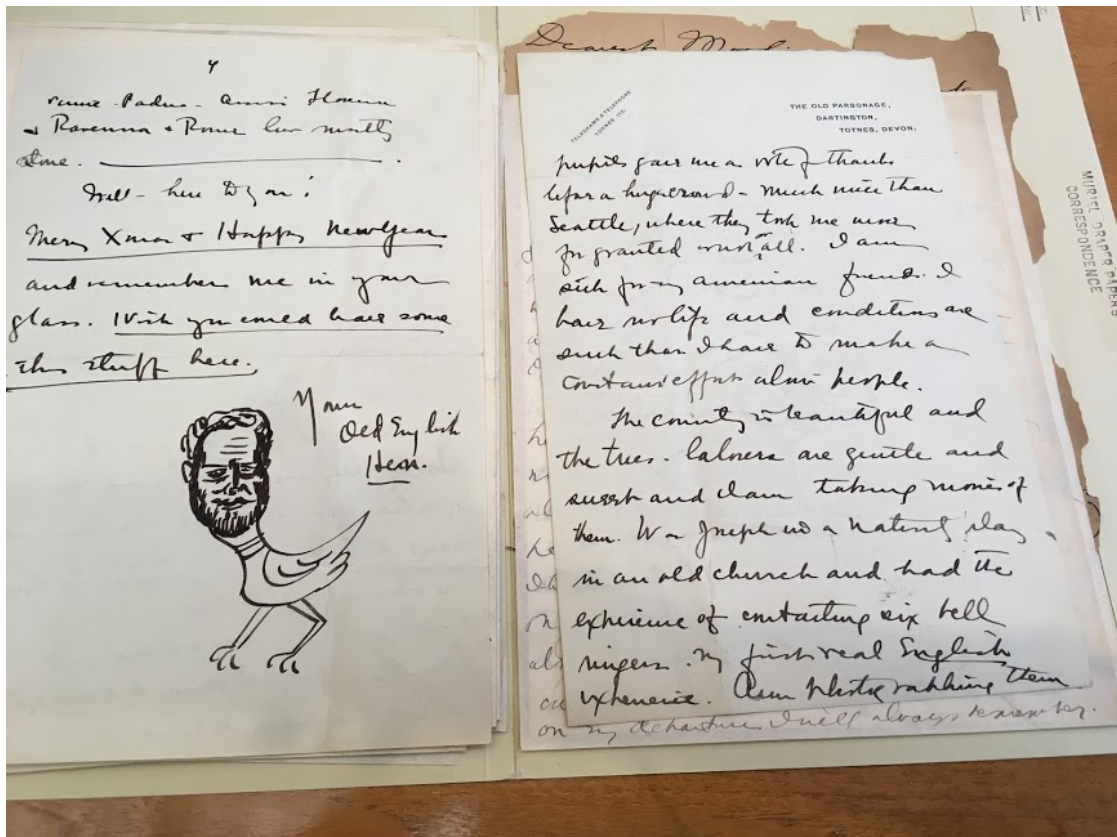 4
Padua -
& Ravenna & Rome
alone.
Well - here's to you!
Merry Xmas & Happy New Year
and remember me in your
glass. Wish you could have some
this stuff here.
Your
Old English
Hern.
Dearest
TELEGRAMS & TELEPHONE
TOTNES
THE OLD PARSONAGE,
DARTINGTON,
TOTNES, DEVON.
pupils gave me a vote of thanks
before a huge crowd - much nicer than
Seattle, where they took me more
for granted all. I am
sick for my american friends. I
have no life and conditions are
such that I have to make a
constant effort alone people.
The country is beautiful and
the trees. laborers are gentle and
sweet and I am taking movies of
them. Was Joseph in a nativity play
in an old church and had the
experience of contacting six bell
ringers. My first real English
experience. Am photographing them
on my departure I will always remember.
MURIEL DRAPER PAPERS
CORRESPONDENCE